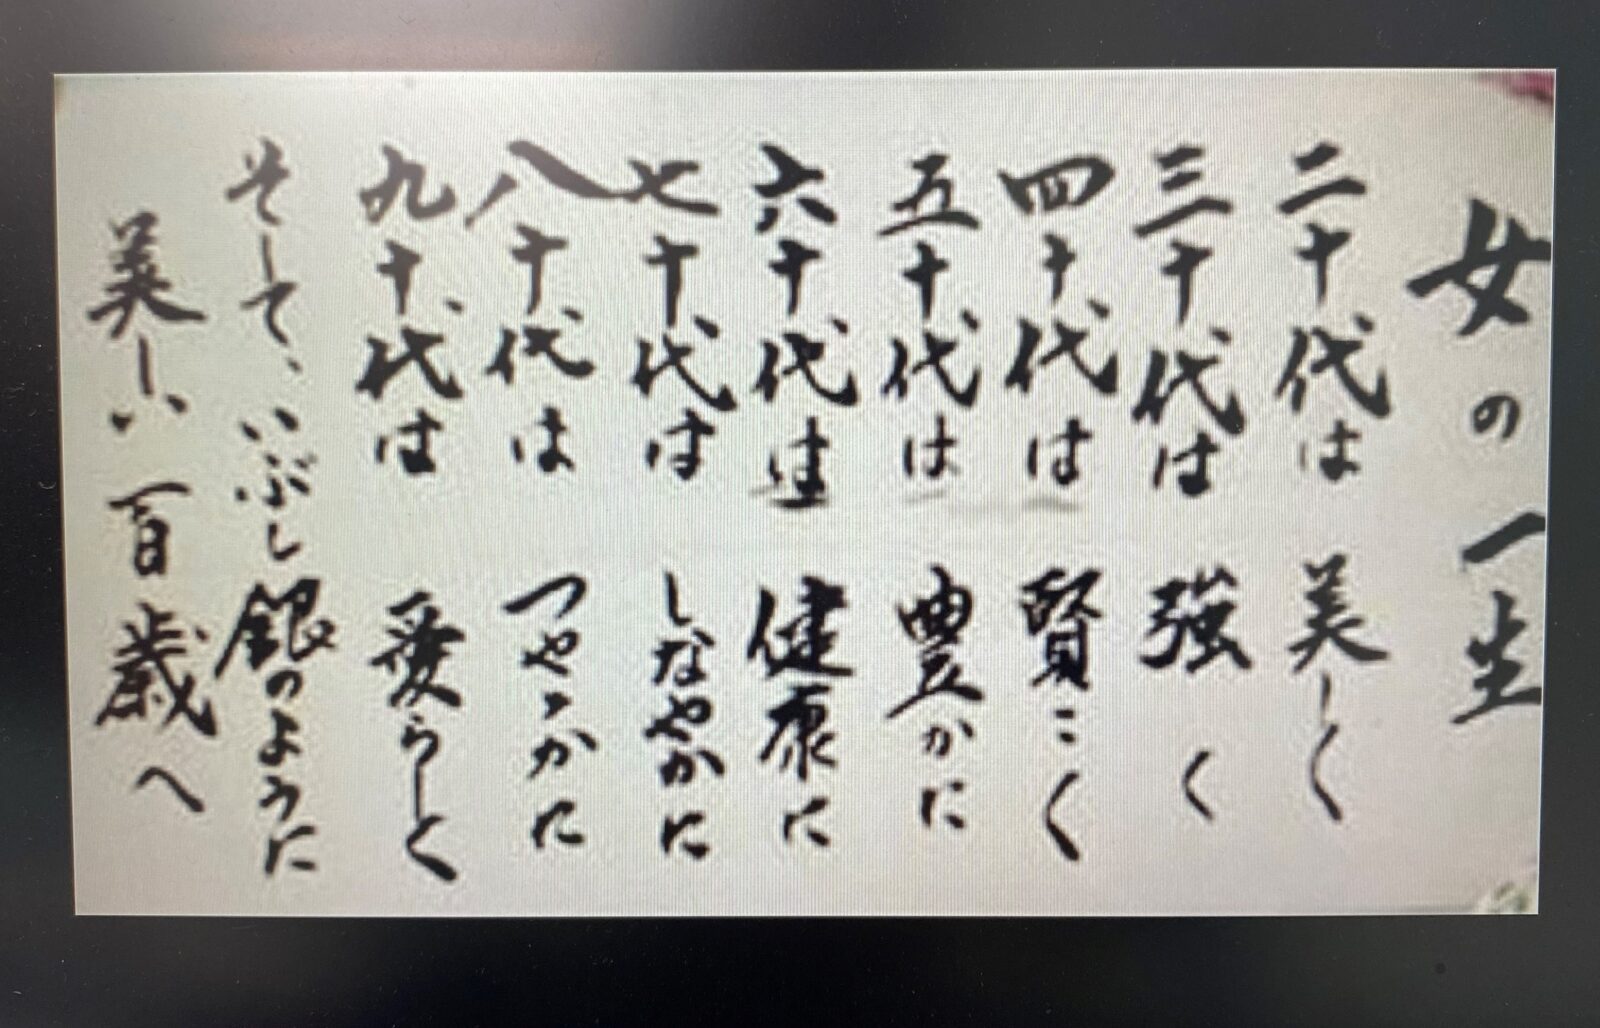 女の一生
二十代は 美しく
三十代は 強く
四十代は 賢こく
五十代は 豊かに
六十代は 健康に
七十代は しなやかに
八十代は つややかに
九十代は 愛らしく
そして、いぶし銀のように
美しい百歳へ